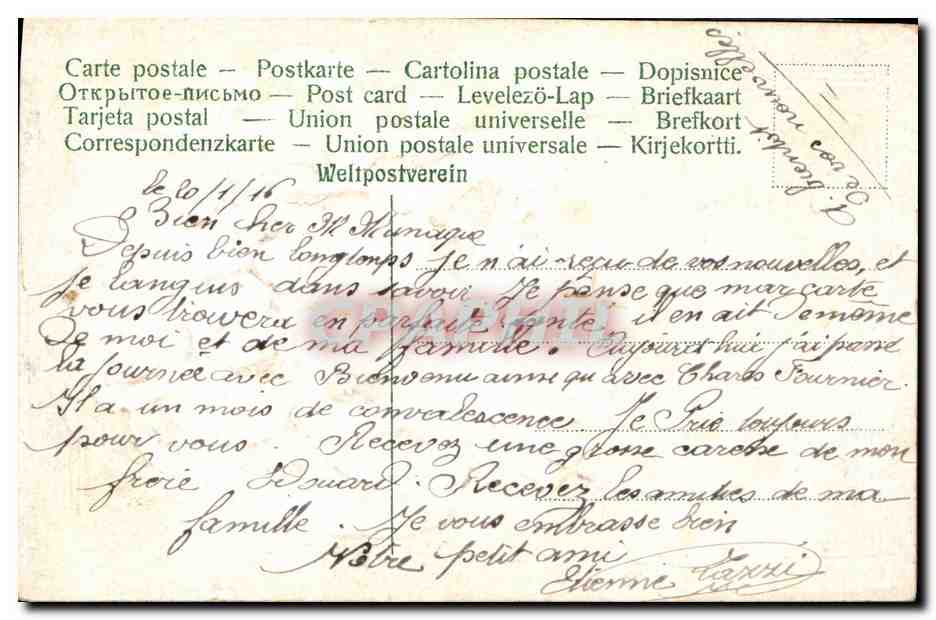 Carte postale — Postkarte — Cartolina postale — Dopisnice
Открытое-письмо — Post card — Levelező-Lap — Briefkaart
Tarjeta postal — Union postale universelle — Brefkort
Correspondenzkarte — Union postale universale — Kirjekortti.
Weltpostverein
A bientôt
de vos nouvelles
le 20/1/16
Bien cher M Munaque
Depuis bien longtemps je n'ai reçu de vos nouvelles, et
je languis dans savoir. Je pense que mar carte
vous trouvera en parfaite sante, il en ait de même
de moi et de ma famille. Aujourd'hui j'ai passé
la journée avec Bienvenu ainsi qu'avec Charles Fournier.
Il a un mois de convalescence. Je Prie toujours
pour vous. Recevez une grosse caresse de mon
frère Edouard. Recevez les amities de ma
famille. Je vous embrasse bien
Votre petit ami
Etienne Tazzi